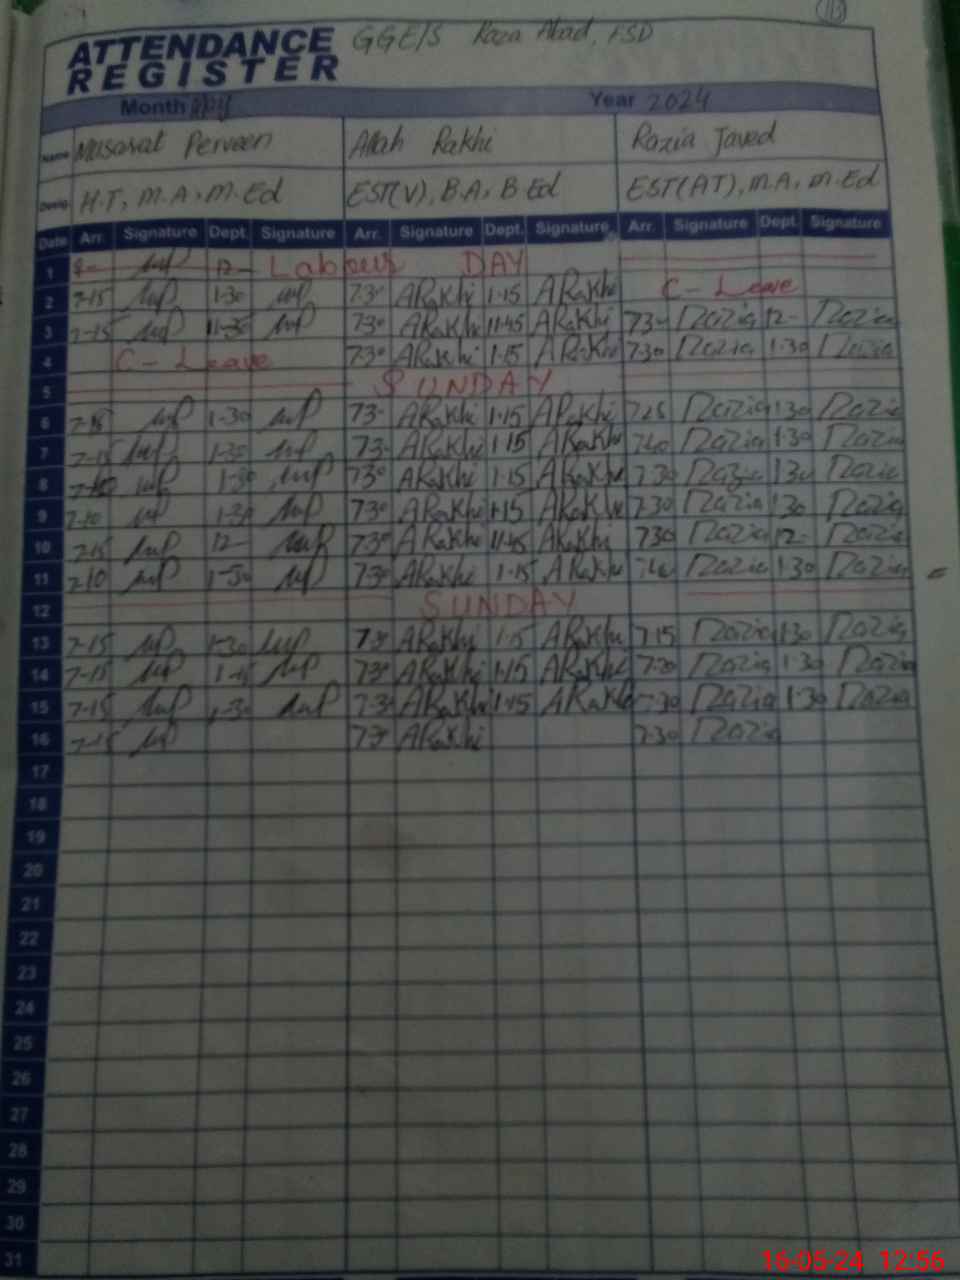 GGE/S Raza Abad, FSD
ATTENDANCE
REGISTER
Month May Year 2024
Name Masarat Perveen Allah Rakhi Razia Javed
Desig. H.T, M.A, M.Ed EST(V), B.A, B.Ed EST(AT), M.A, M.Ed
Date Arr. Signature Dept. Signature Arr. Signature Dept. Signature Arr. Signature Dept. Signature
1 8- 12- Labour DAY
2 7-15 1-30 7.30 ARakhi 1.15 ARakhi C- Leave
3 7-15 11-30 730 ARakhi 11.45 ARakhi 73- Razia 12- Razia
4 C- Leave 730 ARakhi 1.15 ARakhi 7.30 Razia 1.30 Razia
5 SUNDAY
6 7-15 1-30 73- ARakhi 1.15 ARakhi 725 Razia 1.30 Razia
7 7-15 1-30 73- ARakhi 1.15 ARakhi Razia 1.30 Razia
8 1-30 730 ARakhi 1.15 ARakhi 7.30 Razia 1.30 Razia
9 7-10 1-30 730 ARakhi 1.15 ARakhi 7.30 Razia 1.30 Razia
10 7-15 12- 730 ARakhi 11.45 ARakhi 730 Razia 12- Razia
11 7-10 1-30 730 ARakhi 1.15 ARakhi Razia 1.30 Razia
12 SUNDAY
13 7-15 1-30 730 ARakhi 1.15 ARakhi 7.15 Razia 1.30 Razia
14 7-15 730 ARakhi 1.15 ARakhi 7.20 Razia 1.30 Razia
15 7-15 1-30 7.30 ARakhi ARakhi 7.30 Razia 1.30 Razia
16 7-15 730 ARakhi 7.30 Razia
17
18
19
20
21
22
23
24
25
26
27
28
29
30
31
16-05-24 12:56